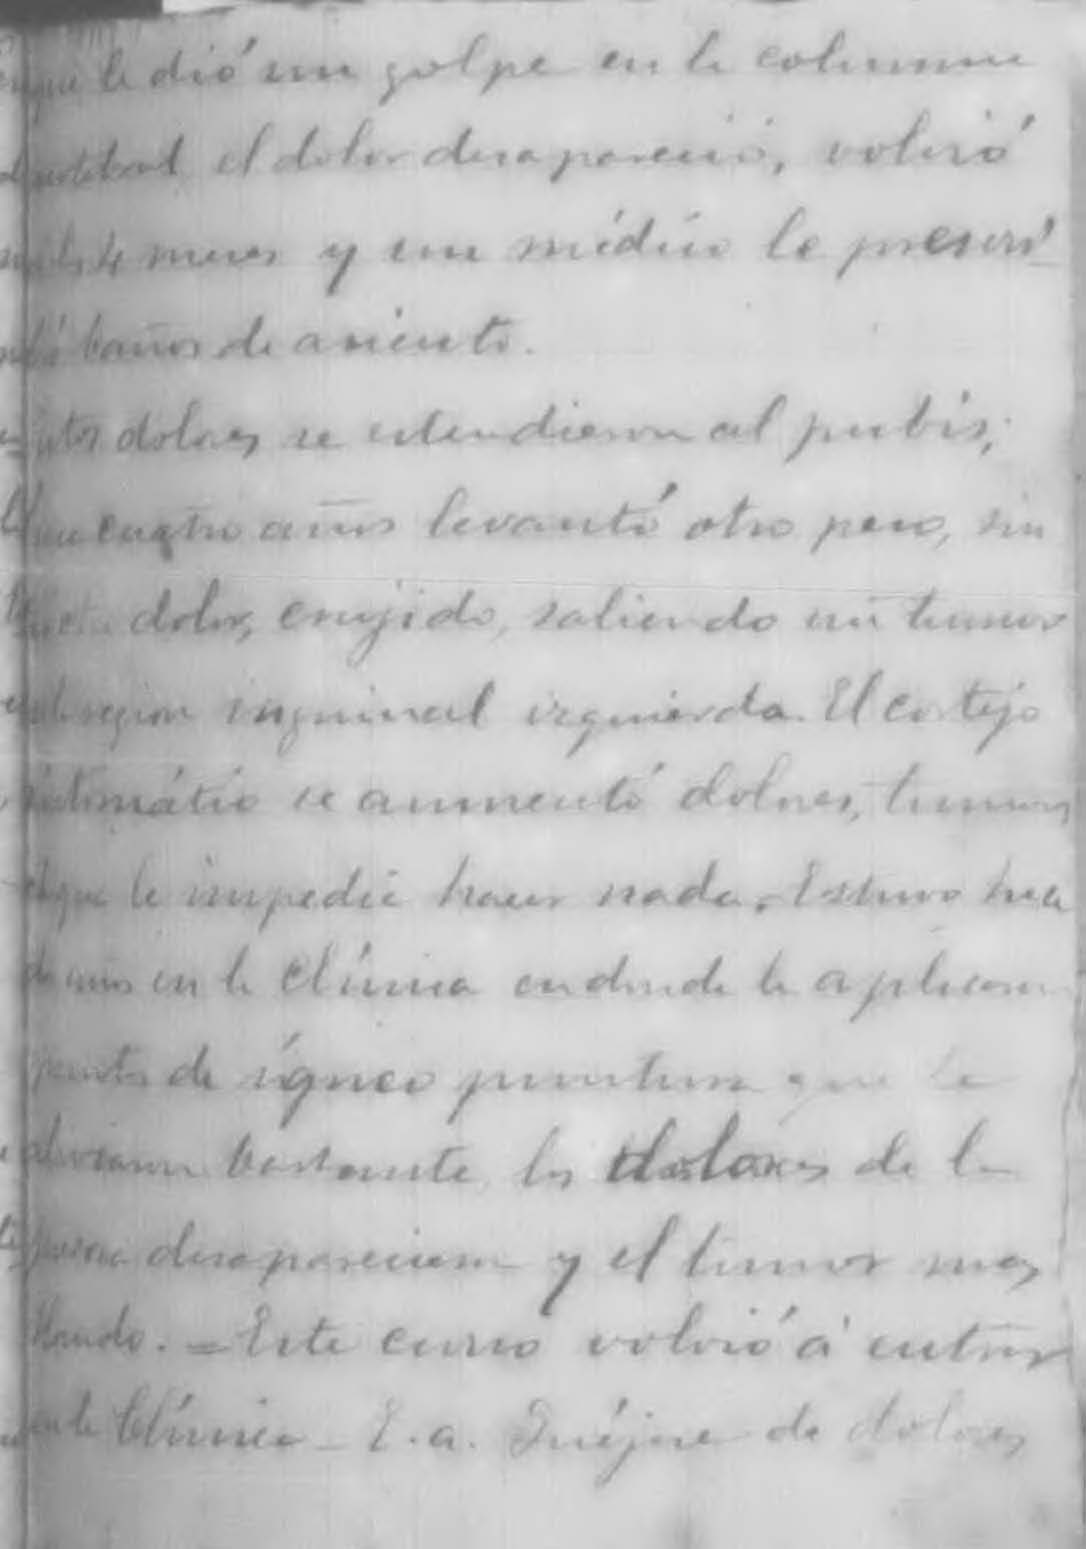 que le dió un golpe en la columna
vertebral el dolor desapareció, volvió
a los 4 meses y un médico le prescri-
bió baños de asiento.
estos dolores se estendieron al pubis;
cuatro años levantó otro peso, sin
dolor, crujido, saliendo un tumor
en la region inguinal izquierda. El cortejo
sintomático se aumentó dolores, tumor
que le impedia hacer nada. Estuvo hace
dos años en la Clínica en donde le aplicaron
puntos de ígneo puntura que le
aliviaron bastante, los dolores de la
desaparecieron y el tumor mas
blando. = Este curso volvió á entrar
en la Clínica - E. a. Quéjase de dolores